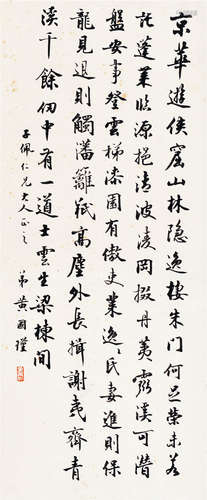 京華遊俠窟山林隱逸棲朱門何足榮未若
託蓬萊臨源挹清波凌岡掇丹荑靈溪可潛
盤安事登雲梯漆園有傲吏萊逸〻氏妻進則保
龍見退則觸藩羝高塵外長揖謝夷齊青
溪千餘仞中有一道士雲生梁棟間
子佩仁兄大人正之
弟黃國瑾